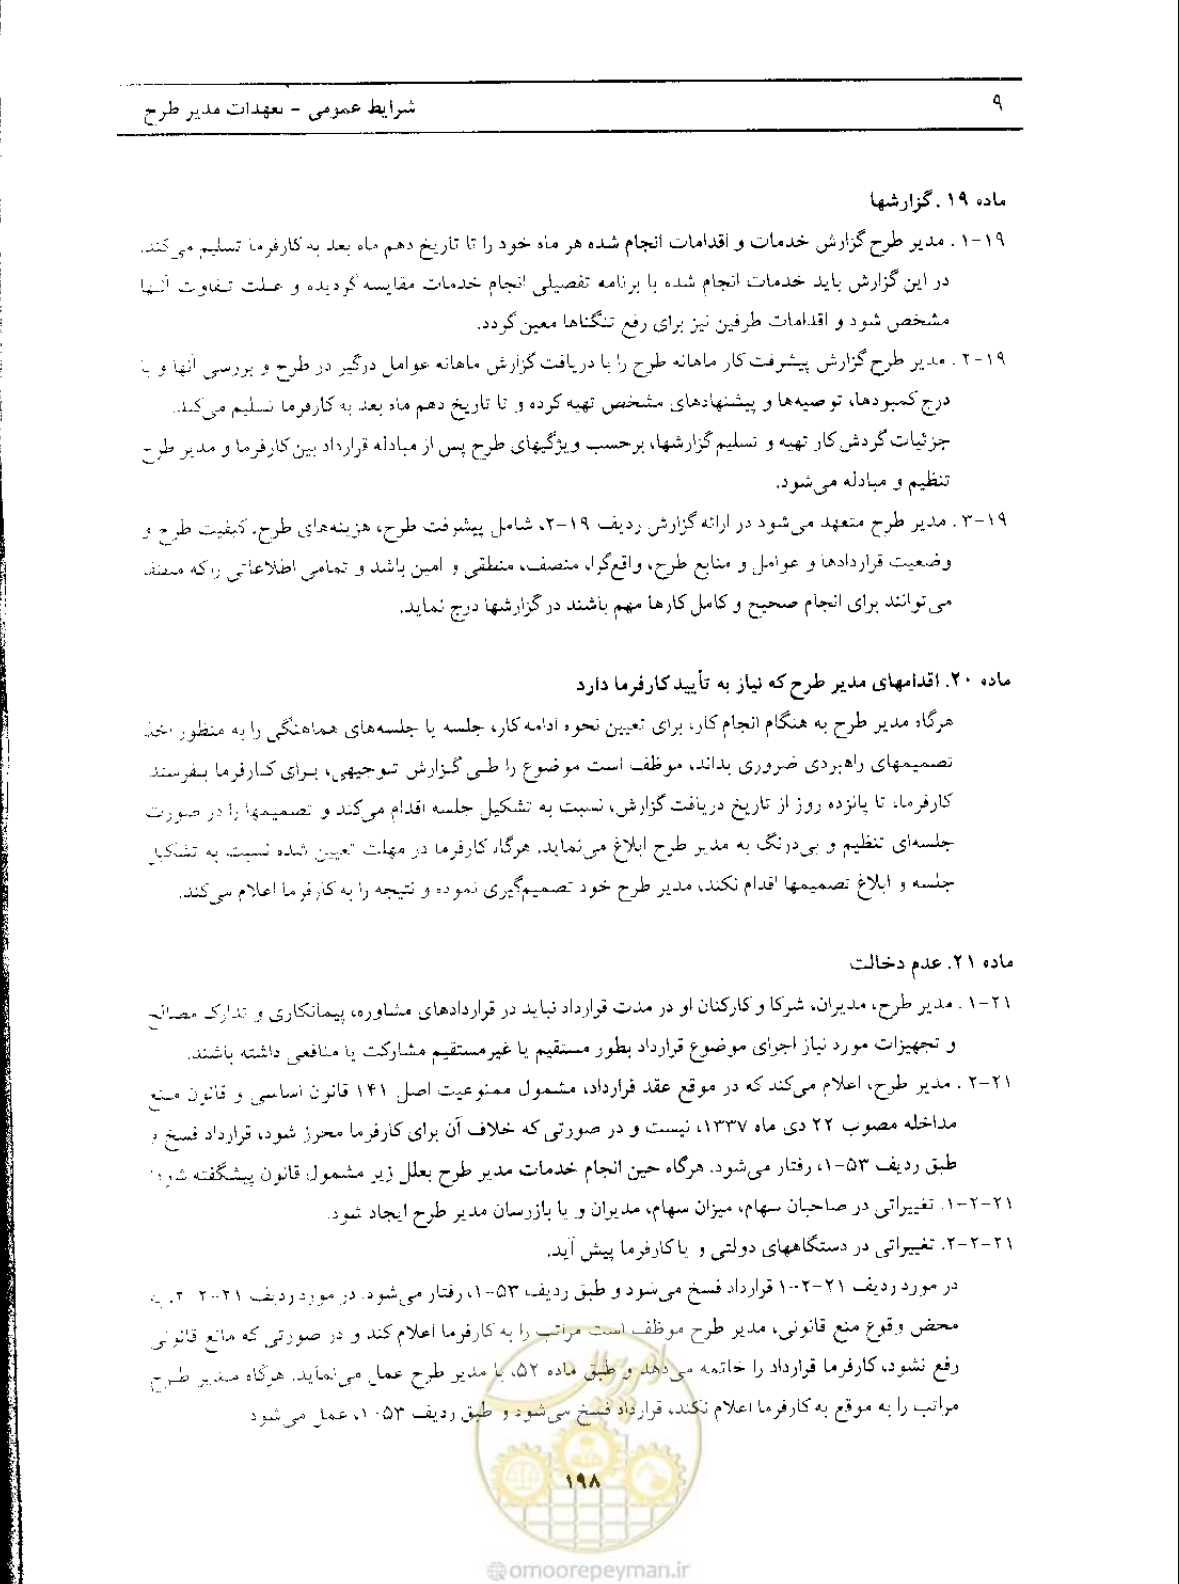 ۹
شرایط عمومی - تعهدات مدیر طرح
ماده ۱۹. گزارشها
۱۹-۱. مدیر طرح گزارش خدمات و اقدامات انجام شده هر ماه خود را تا تاریخ دهم ماه بعد به کارفرما تسلیم می‌کند.
در این گزارش باید خدمات انجام شده با برنامه تفصیلی انجام خدمات مقایسه گردیده و علت تفاوت آنها
مشخص شود و اقدامات طرفین نیز برای رفع تنگناها معین گردد.
۱۹-۲. مدیر طرح گزارش پیشرفت کار ماهانه طرح را با دریافت گزارش ماهانه عوامل درگیر در طرح و بررسی آنها و با
درج کمبودها، توصیه‌ها و پیشنهادهای مشخص تهیه کرده و تا تاریخ دهم ماه بعد به کارفرما تسلیم می‌کند.
جزئیات گردش کار تهیه و تسلیم گزارشها، برحسب ویژگیهای طرح پس از مبادله قرارداد بین کارفرما و مدیر طرح
تنظیم و مبادله می‌شود.
۱۹-۳. مدیر طرح متعهد می‌شود در ارائه گزارش ردیف ۱۹-۲، شامل پیشرفت طرح، هزینه‌های طرح، کیفیت طرح و
وضعیت قراردادها و عوامل و منابع طرح، واقع‌گرا، منصف، منطقی و امین باشد و تمامی اطلاعاتی را که
می‌توانند برای انجام صحیح و کامل کارها مهم باشند در گزارشها درج نماید.
ماده ۲۰. اقدامهای مدیر طرح که نیاز به تأیید کارفرما دارد
هرگاه مدیر طرح به هنگام انجام کار، برای تعیین نحوه ادامه کار، جلسه یا جلسه‌های هماهنگی را به منظور اخذ
تصمیمهای راهبردی ضروری بداند، موظف است موضوع را طی گزارش توجیهی، برای کارفرما بفرستد.
کارفرما، تا پانزده روز از تاریخ دریافت گزارش، نسبت به تشکیل جلسه اقدام می‌کند و تصمیمها را در صورت
جلسه‌ای تنظیم و بی‌درنگ به مدیر طرح ابلاغ می‌نماید. هرگاه کارفرما در مهلت تعیین شده نسبت به تشکیل
جلسه و ابلاغ تصمیمها اقدام نکند، مدیر طرح خود تصمیم‌گیری نموده و نتیجه را به کارفرما اعلام می‌کند.
ماده ۲۱. عدم دخالت
۲۱-۱. مدیر طرح، مدیران، شرکا و کارکنان او در مدت قرارداد نباید در قراردادهای مشاوره، پیمانکاری و تدارک مصالح
و تجهیزات مورد نیاز اجرای موضوع قرارداد بطور مستقیم یا غیرمستقیم مشارکت یا منافعی داشته باشند.
۲۱-۲. مدیر طرح، اعلام می‌کند که در موقع عقد قرارداد، مشمول ممنوعیت اصل ۱۴۱ قانون اساسی و قانون منع
مداخله مصوب ۲۲ دی ماه ۱۳۳۷، نیست و در صورتی که خلاف آن برای کارفرما محرز شود، قرارداد فسخ و
طبق ردیف ۵۳-۱، رفتار می‌شود. هرگاه حین انجام خدمات مدیر طرح بعلل زیر مشمول قانون پیشگفته شود:
۲۱-۲-۱. تغییراتی در صاحبان سهام، میزان سهام، مدیران و یا بازرسان مدیر طرح ایجاد شود.
۲۱-۲-۲. تغییراتی در دستگاههای دولتی و یا کارفرما پیش آید.
در مورد ردیف ۲۱-۲-۱ قرارداد فسخ می‌شود و طبق ردیف ۵۳-۱، رفتار می‌شود. در مورد ردیف ۲۱-۲-۲، به
محض وقوع منع قانونی، مدیر طرح موظف است مراتب را به کارفرما اعلام کند و در صورتی که مانع قانونی
رفع نشود، کارفرما قرارداد را خاتمه می‌دهد و طبق ماده ۵۲، با مدیر طرح عمل می‌نماید. هرگاه مدیر طرح
مراتب را به موقع به کارفرما اعلام نکند، قرارداد فسخ می‌شود و طبق ردیف ۵۳-۱، عمل می‌شود
۱۹۸
امور پیمان
@omoorepeyman.ir